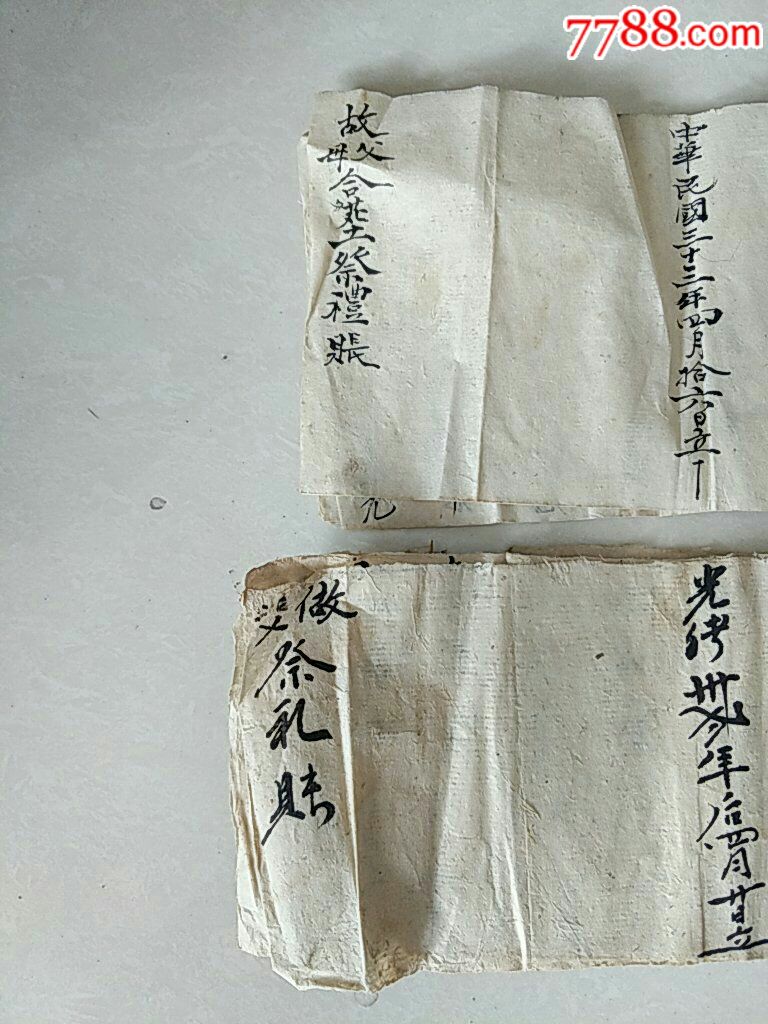 7788.com
中華民國三十三年四月拾六日立
故父母合塟祭禮賬
九
光绪卅年后四月廿日立
做父祭礼账